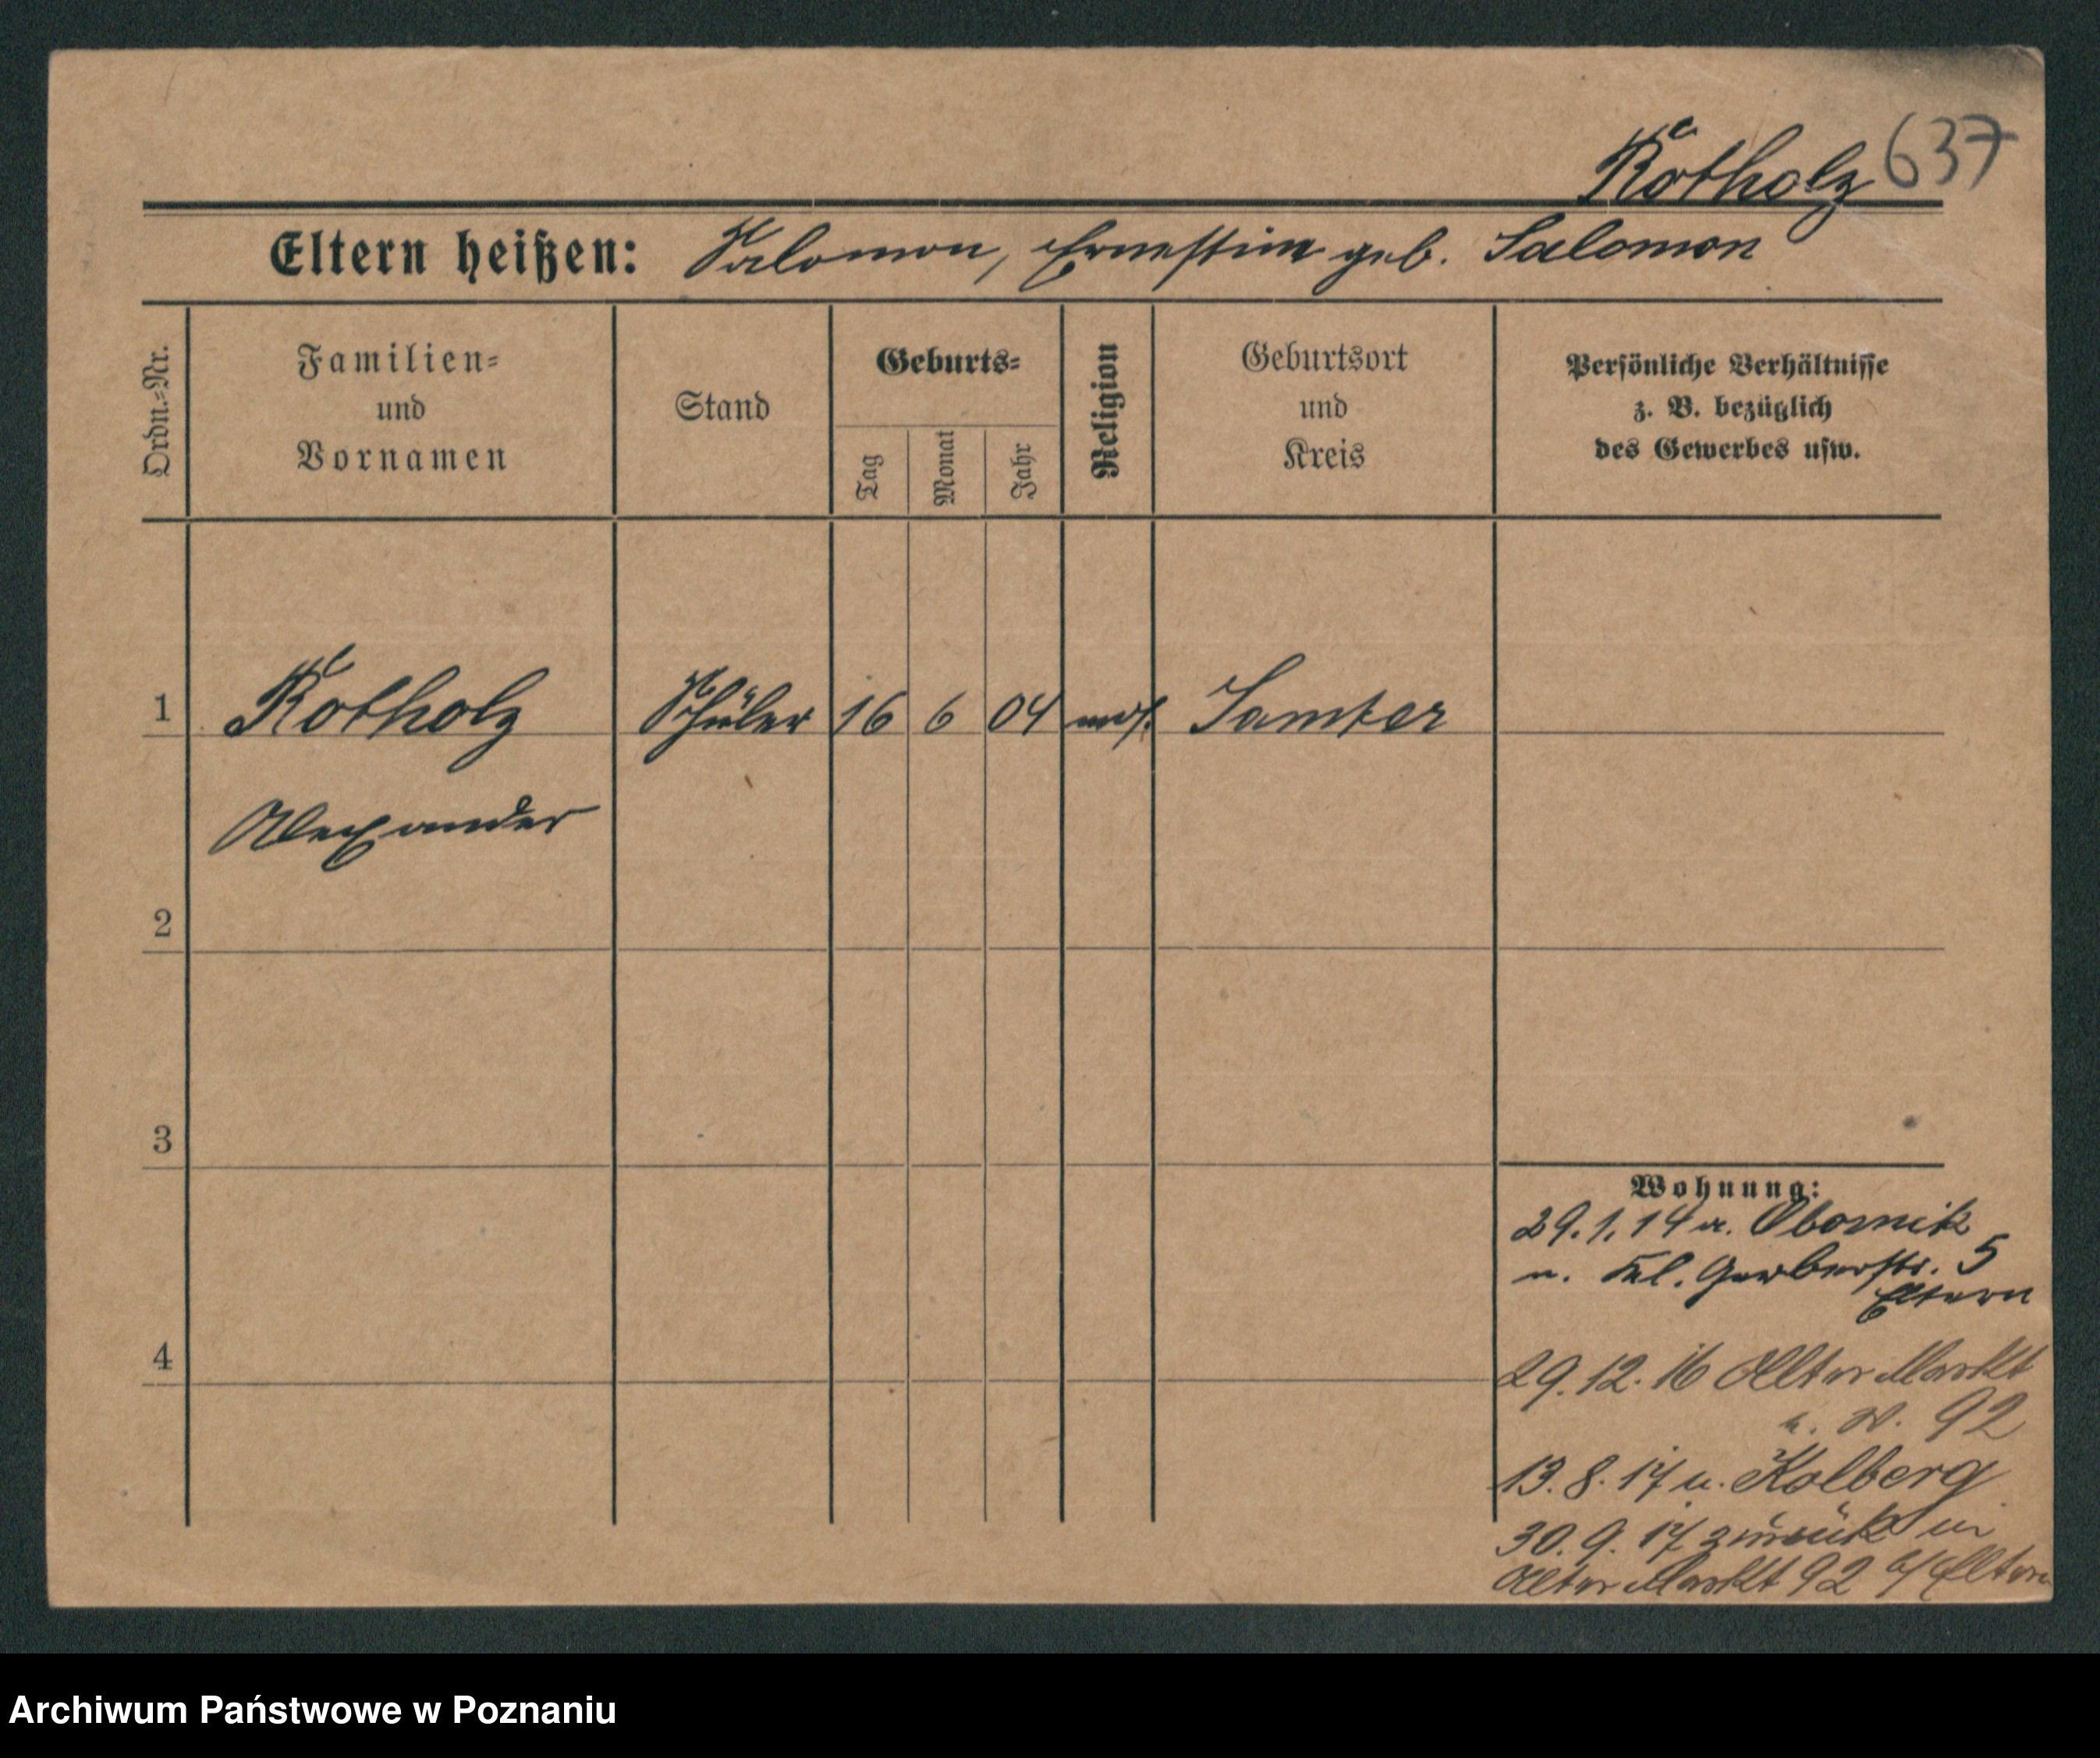 Rotholz 637
Eltern heißen: Salomon, Ernestine geb. Salomon
Ordn.-Nr.
Familien-
und
Vornamen
Stand
Geburts-
Tag
Monat
Jahr
Religion
Geburtsort
und
Kreis
Persönliche Verhältnisse
z. B. bezüglich
des Gewerbes usw.
1 Rotholz Schüler 16 6 04 mos. Samter
Alexander
2
3
4
Wohnung:
29.1.14 a. Obornik
n. Kl. Gerberstr. 5
Eltern
29.12.16 Alter Markt
92
13.8.17 n. Kolberg
30.9.17 zurück in
Alter Markt 92 b/ Eltern
Archiwum Państwowe w Poznaniu